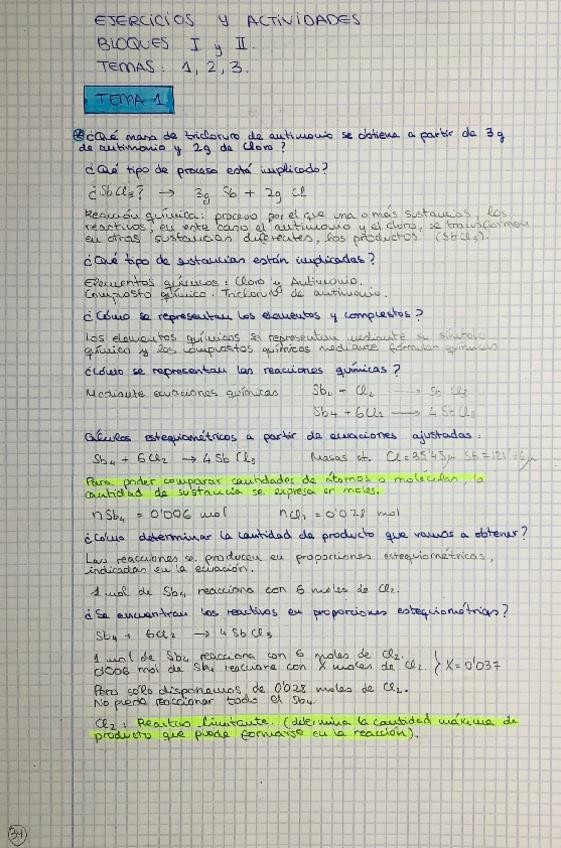 EJERCICIOS Y ACTIVIDADES
BLOQUES I y II.
TEMAS: 1, 2, 3.
TEMA 1
¿Qué masa de tricloruro de antimonio se obtiene a partir de 3g
de antimonio y 2g de cloro?
¿Qué tipo de proceso está implicado?
¿SbCl3? → 3g Sb + 2g Cl
Reacción química: proceso por el que una o más sustancias, los
reactivos, en este caso el antimonio y el cloro, se transforman
en otras sustancias diferentes, los productos (SbCl3).
¿Qué tipo de sustancias están implicadas?
Elementos químicos: Cloro y Antimonio.
Compuesto químico: Tricloruro de antimonio.
¿Cómo se representan los elementos y compuestos?
Los elementos químicos se representan mediante su símbolo
químico y los compuestos químicos mediante fórmulas químicas
¿Cómo se representan las reacciones químicas?
Mediante ecuaciones químicas Sb4 - Cl2 → Sb Cl3
Sb4 + 6Cl2 → 4 SbCl3
Cálculos estequiométricos a partir de ecuaciones ajustadas:
Sb4 + 6Cl2 → 4 Sb Cl3 Masas at. Cl = 35'45µ Sb = 121'76µ
Para poder comparar cantidades de átomos o moléculas, la
cantidad de sustancia se expresa en moles.
nSb4 = 0'006 mol nCl2 = 0'028 mol
¿Cómo determinar la cantidad de producto que vamos a obtener?
Las reacciones se producen en proporciones estequiométricas,
indicadas en la ecuación.
1 mol de Sb4 reacciona con 6 moles de Cl2.
¿Se encuentran los reactivos en proporciones estequiométricas?
Sb4 + 6Cl2 → 4 SbCl3
1 mol de Sb4 reacciona con 6 moles de Cl2.
0'006 mol de Sb4 reacciona con X moles de Cl2. } X = 0'037
Pero sólo disponemos de 0'028 moles de Cl2.
No puede reaccionar todo el Sb4.
Cl2: Reactivo limitante. (determina la cantidad máxima de
producto que puede formarse en la reacción).